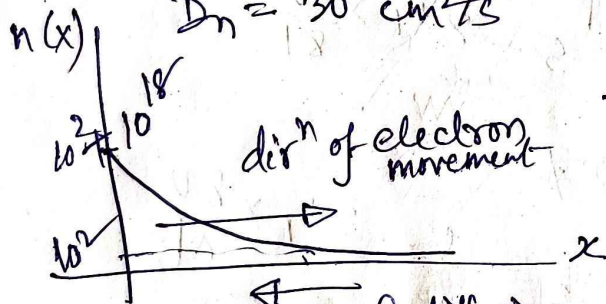 Dn = 30 cm²/s
n(x)
10² 10¹⁸
dirⁿ of electron
movement
10²
x